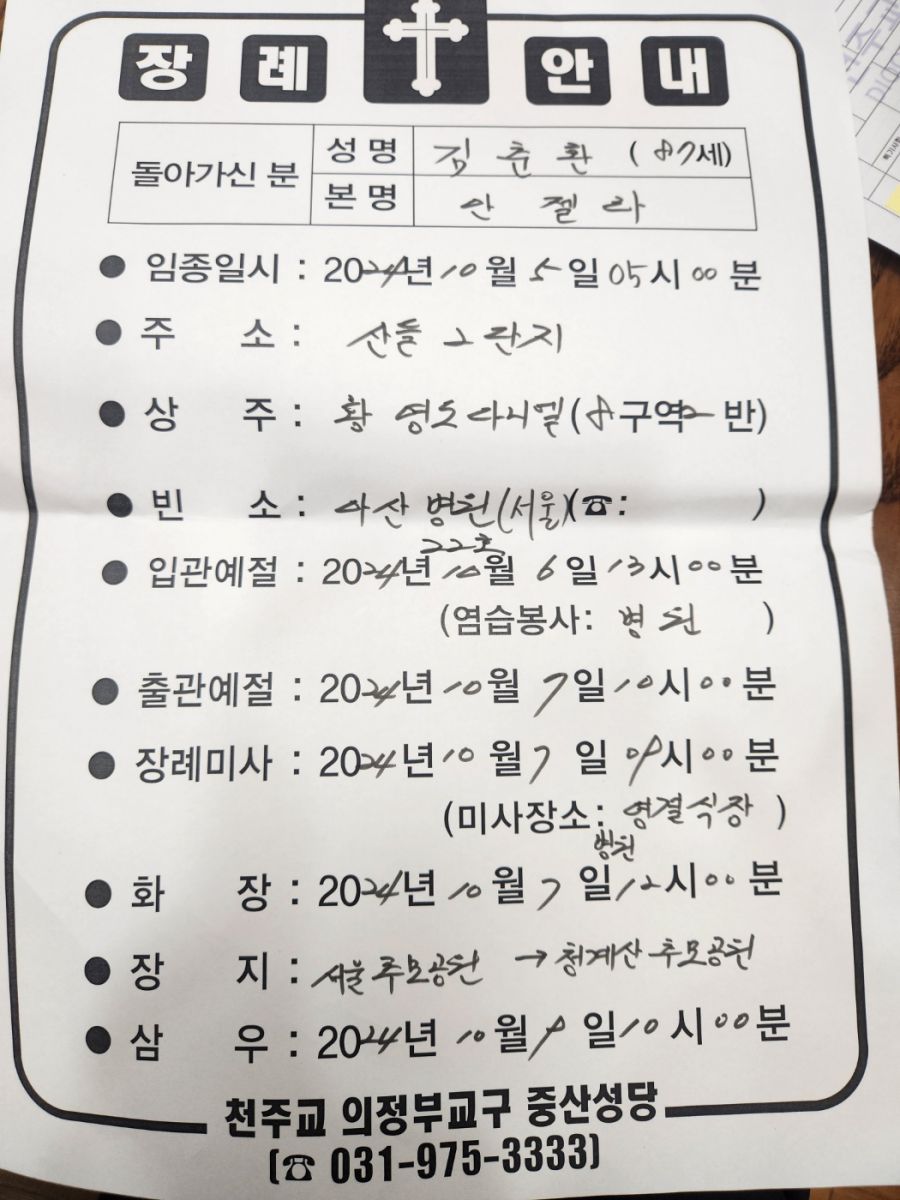 장례 안내
돌아가신 분 성명 김춘환 (87세)
본명 안젤라
● 임종일시 : 2024년 10월 5일 05시 00분
● 주 소 : 산들 2단지
● 상 주 : 황영도다니엘(8구역2반)
● 빈 소 : 아산병원(서울)(☎: )
22호
● 입관예절 : 2024년 10월 6일 13시 00분
(염습봉사: 병원 )
● 출관예절 : 2024년 10월 7일 10시 00분
● 장례미사 : 2024년 10월 7일 09시 00분
(미사장소: 영결식장 )
병원
● 화 장 : 2024년 10월 7일 12시 00분
● 장 지 : 서울추모공원 → 청계산 추모공원
● 삼 우 : 2024년 10월 9일 10시 00분
천주교 의정부교구 중산성당
(☎ 031-975-3333)